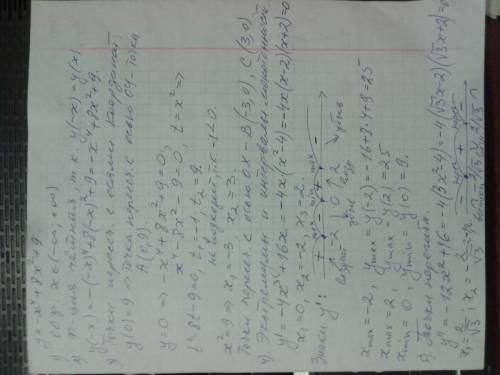 y = -x⁴ + 8x² + 9
1) ООУ: x ∈ (-∞; +∞)
2) Ф-ция чётная, т.к. y(-x) = y(x)
y(-x) = -(-x)⁴ + 8(-x)² + 9 = -x⁴ + 8x² + 9.
3) Точки перес. с осями координат:
y(0) = 9 ⇒ точка перес. с осью Oy - точка
A(0; 9).
y = 0 ⇒ -x⁴ + 8x² + 9 = 0,
x⁴ - 8x² - 9 = 0, t = x² ⇒
t² - 8t - 9 = 0, t₁ = -1, t₂ = 9.
не подходит, т.к. -1 < 0.
x² = 9 ⇒ x₁ = -3, x₂ = 3.
Точки перес. с осью OX - B(-3; 0), C(3; 0)
4) Экстремумы и интервалы монотонности.
y' = -4x³ + 16x = -4x(x² - 4) = -4x(x-2)(x+2) = 0
x₁ = 0, x₂ = -2, x₃ = 2.
Знаки y':
+ max - min + max -
-2 0 2
возраст убыв возр убыв
x max = -2, y max = y(-2) = -16 + 8·4 + 9 = 25
x max = 2, y max = y(2) = 25
x min = 0, y min = y(0) = 9.
5) Точки перегиба.
y'' = -12x² + 16 = -4(3x² - 4) = -4(√3x - 2)(√3x + 2) = 0
x₁ = 2/√3; x₂ = -2/√3
- + -
-2/√3 2/√3